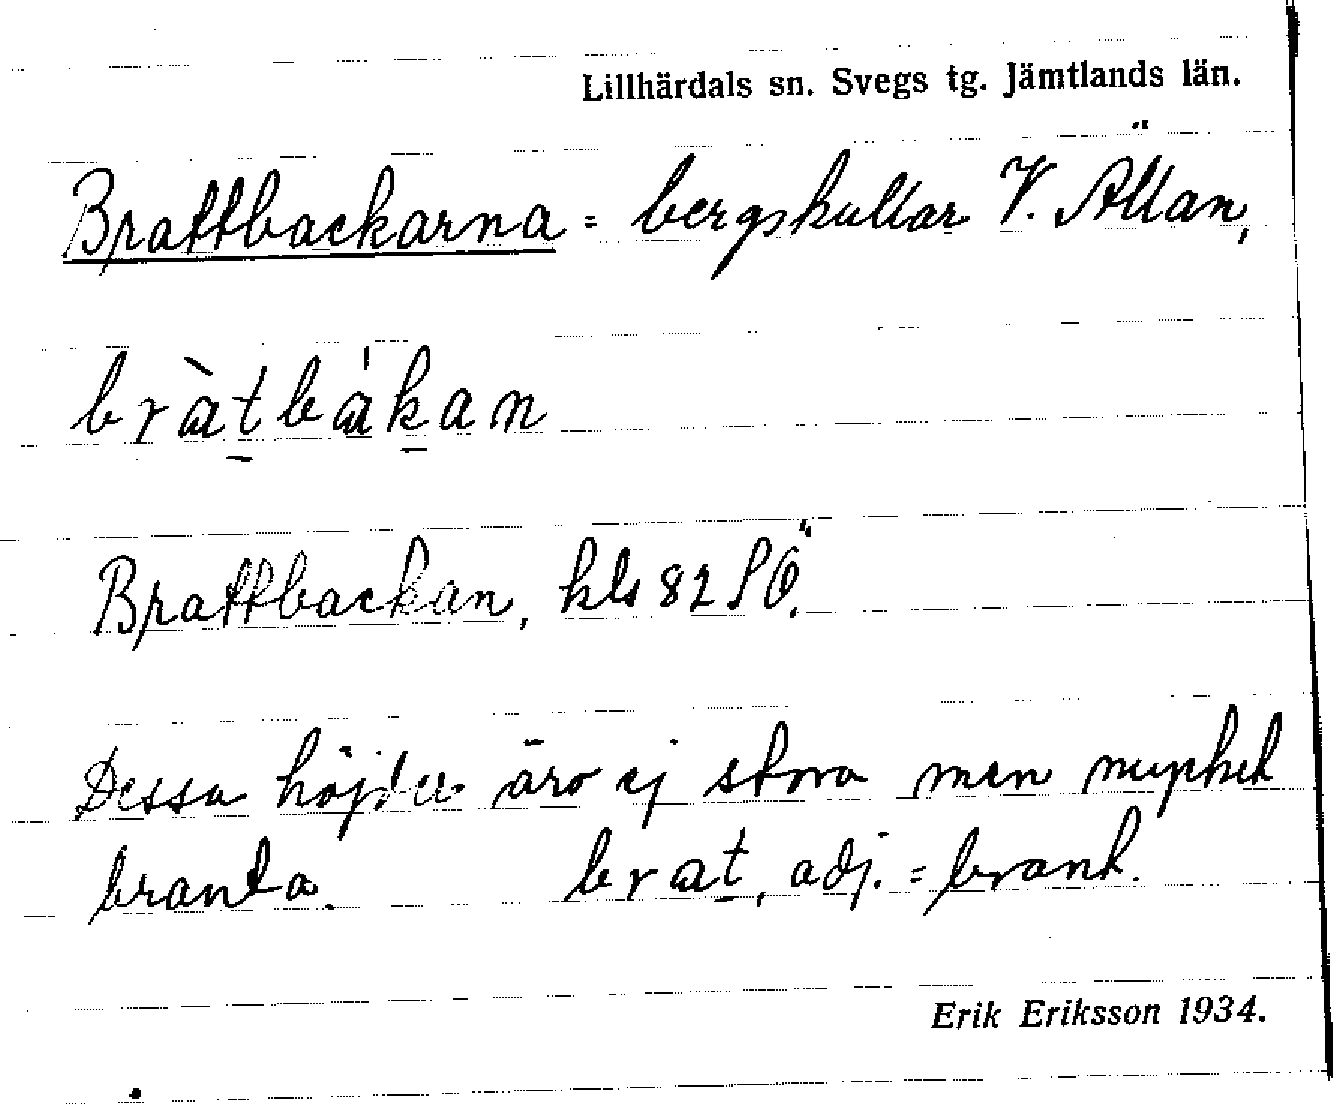 Lillhärdals sn. Svegs tg. Jämtlands län.
Brattbackarna = bergskullar V. Ällan,
bràtbákan
Brattbackan, kls 82 SÖ.
Dessa höjder äro ej stora men mycket
branta. brat, adj. = brant.
Erik Eriksson 1934.